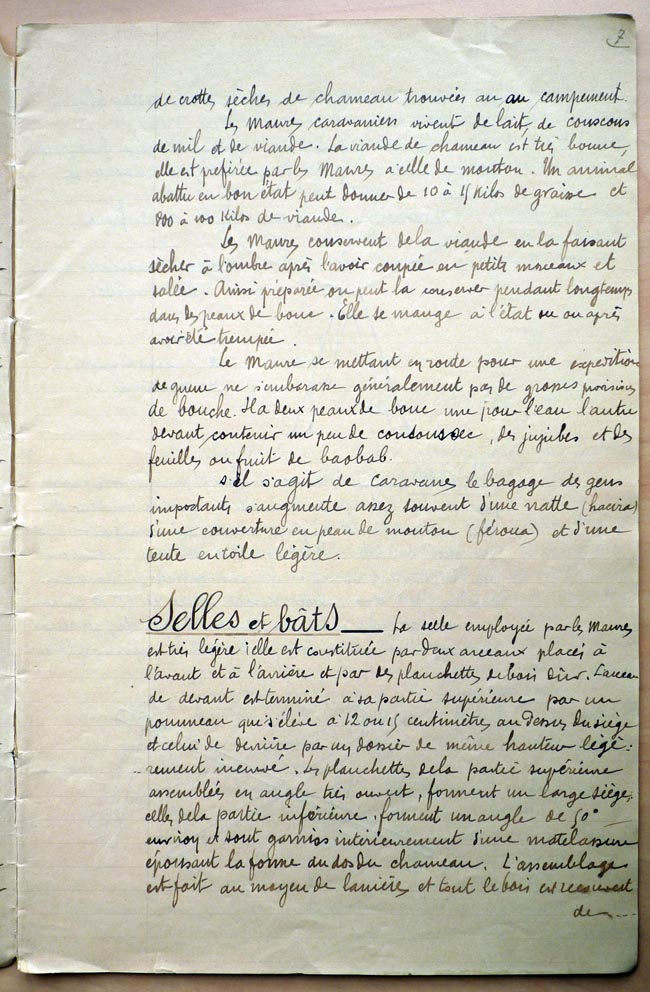 7
de crottes sèches de chameau trouvées au au campement.
Les Maures caravaniers vivent de lait, de couscous
de mil et de viande. La viande de chameau est très bonne,
elle est préférée par les Maures à celle de mouton. Un animal
abattu en bon état peut donner de 10 à 15 kilos de graisse et
à 100 kilos de viande.
Les Maures conservent de la viande en la faisant
sécher à l'ombre après l'avoir coupée en petits morceaux et
salée. Ainsi préparée on peut la conserver pendant longtemps
dans des peaux de bouc. Elle se mange à l'état ou ou après
avoir été trempée.
Le Maure se mettant en route pour une expédition
de guerre ne s'embarasse généralement pas de grosses provisions
de bouche. Il a deux peaux de bouc une pour l'eau l'autre
devant contenir un peu de couscous sec, des jujubes et des
feuilles ou fruit de baobab.
S'il s'agit de caravanes le bagage des gens
importants s'augmente assez souvent d'une natte (hacira)
d'une couverture en peau de mouton (féroua) et d'une
tente en toile légère.
Selles et bâts — La selle employée par les Maures
est très légère : elle est constituée par deux arceaux placés à
l'avant et à l'arrière et par des planchettes de bois dur. L'arceau
de devant est terminé à sa partie supérieure par un
pommeau qui s'élève à 12 ou 15 centimètres au dessus du siège
et celui de derrière par un dossier de même hauteur légè-
rement incurvé. Les planchettes de la partie supérieure
assemblées en angle très ouvert, forment un large siège,
celles de la partie inférieure forment un angle de 50°
environ et sont garnies intérieurement d'une matelassure
épousant la forme du dos du chameau. L'assemblage
est fait au moyen de lanières et tout le bois est recouvert
de ....